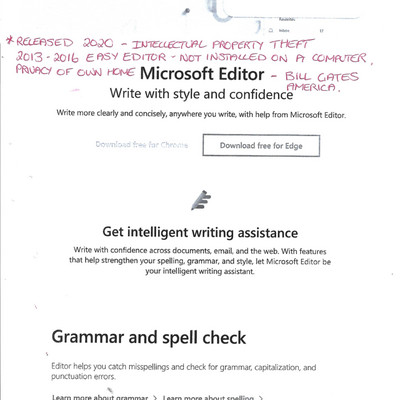 Inbox
* RELEASED 2020 - INTELLECTUAL PROPERTY THEFT
2013-2016 EASY EDITOR - NOT INSTALLED ON A COMPUTER,
PRIVACY OF OWN HOME Microsoft Editor - BILL GATES
AMERICA.
Write with style and confidence
Write more clearly and concisely, anywhere you write, with help from Microsoft Editor.
Download free for Chrome Download free for Edge
Get intelligent writing assistance
Write with confidence across documents, email, and the web. With features
that help strengthen your spelling, grammar, and style, let Microsoft Editor be
your intelligent writing assistant.
Grammar and spell check
Editor helps you catch misspellings and check for grammar, capitalization, and
punctuation errors.
Learn more about grammar > Learn more about spelling >